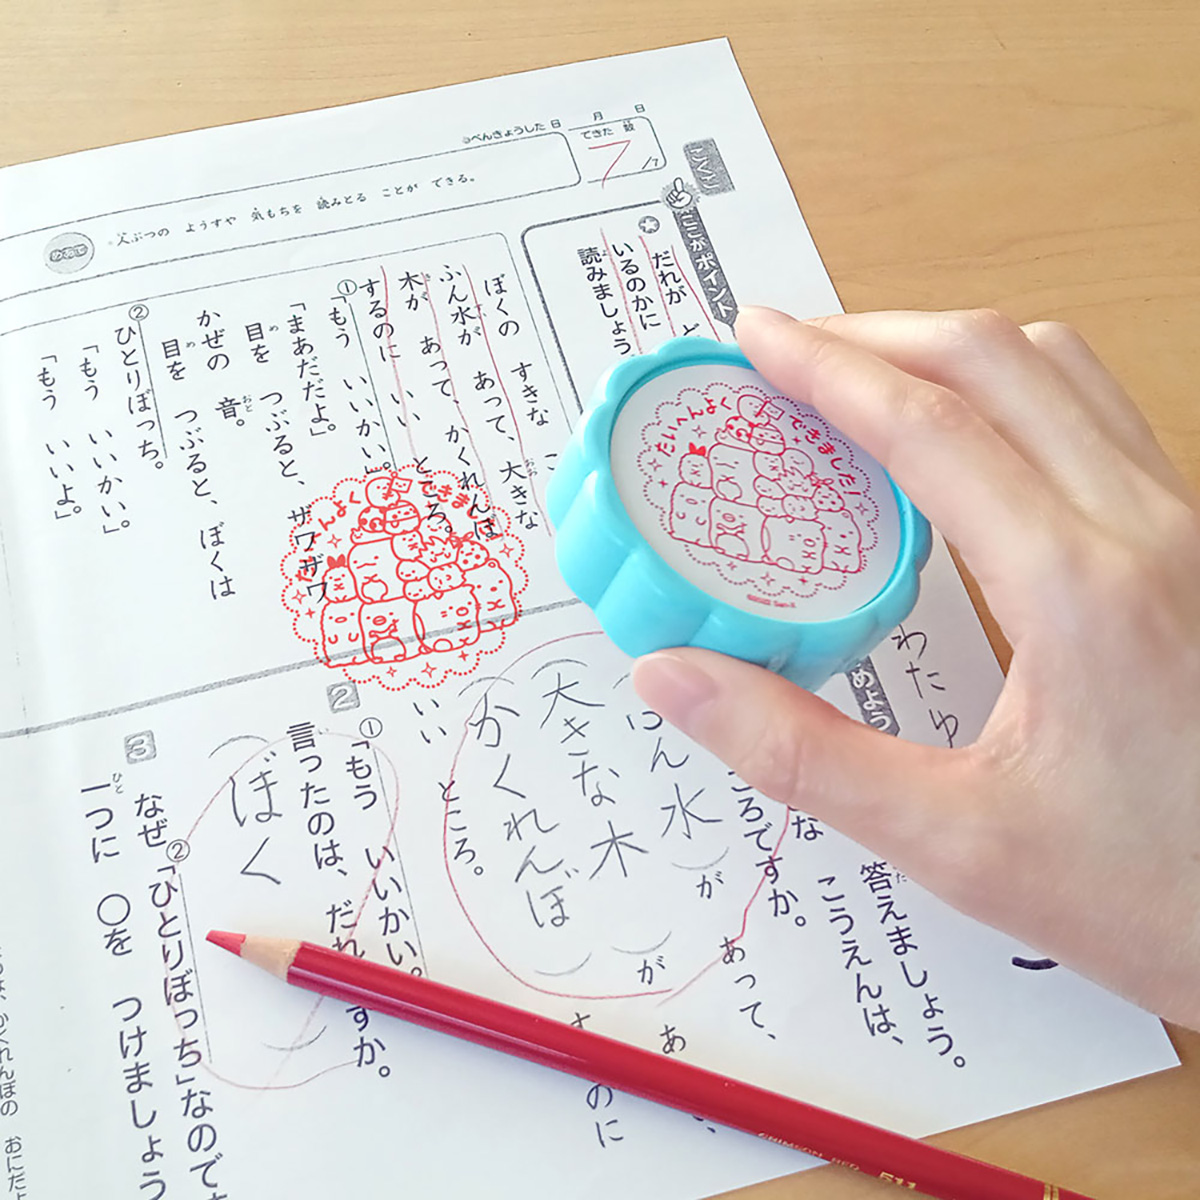 べんきょうした日 月 日
できた 数
7/7
こくご
めあて
人ぶつの ようすや 気もちを 読みとる ことが できる。
ここがポイント
だれが ど
いるのかに
読みましょう
ぼくの すきな こ
ふん水が あって、大きな
木が あって、かくれんぼ
するのに いい ところ。
①「もう いいかい。」
「まあだだよ。」
目を つぶると、ザワザワ
かぜの 音。
目を つぶると、ぼくは
②ひとりぼっち。
「もう いいかい」
「もう いいよ。」
たいへんよくできました!
んよく
できま
わたゆ
めよう
答えましょう。
こうえんは、
な
ころですか。
ん水
が
あって、
大きな木
が
あ
かくれんぼ
のに
いい ところ。
2
①「もう いいかい。
言ったのは、だれ
すか。
ぼく
3
なぜ②「ひとりぼっち」なので
一つに ○を つけましょう
かくれんぼの おにだよ
CRIMSON RED 511